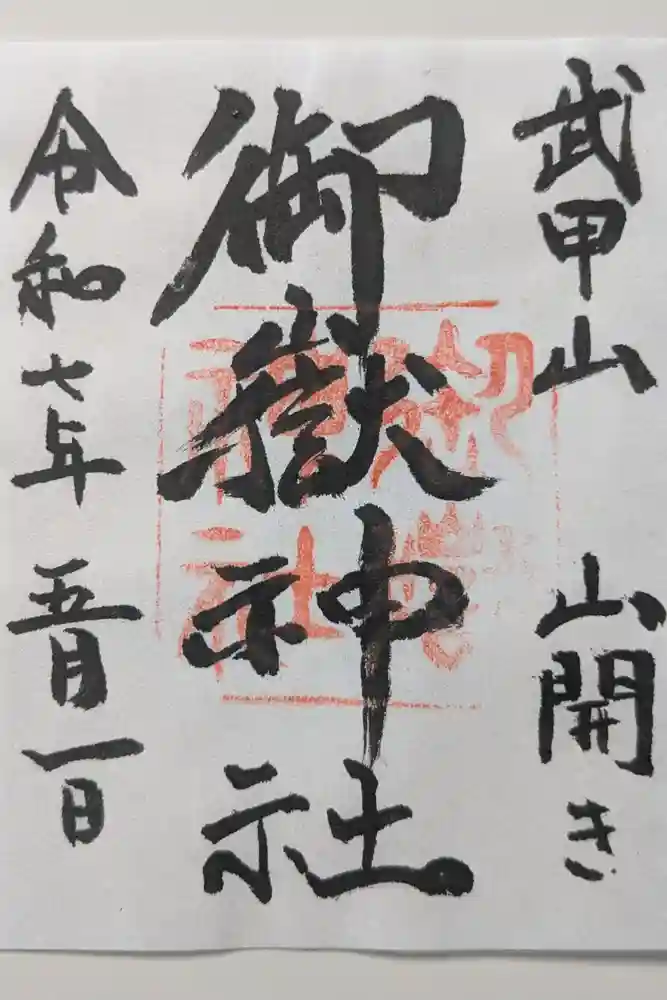 武甲山 山開き
御嶽神社
令和七年 五月一日